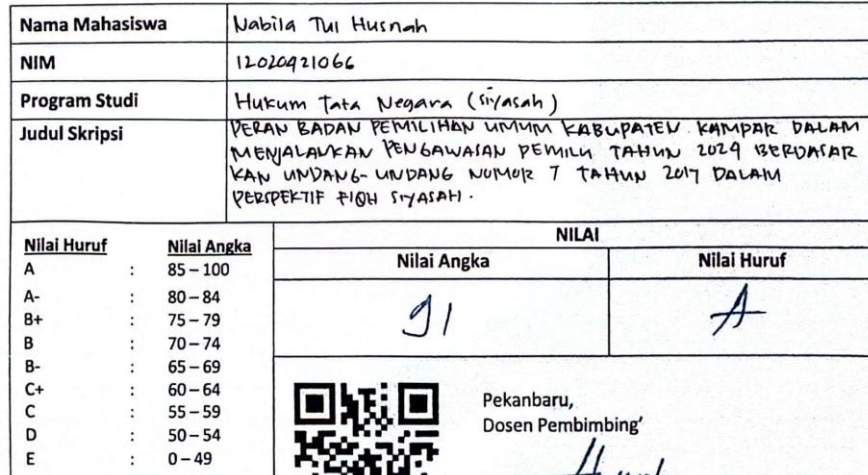 Nama Mahasiswa Nabila Tul Husnah
NIM 12020421066
Program Studi Hukum Tata Negara (siyasah)
Judul Skripsi PERAN BADAN PEMILIHAN UMUM KABUPATEN KAMPAR DALAM
MENJALANKAN PENGAWASAN PEMILU TAHUN 2024 BERDASAR
KAN UNDANG-UNDANG NOMOR 7 TAHUN 2017 DALAM
PERSPEKTIF FIQH SIYASAH.
Nilai Huruf Nilai Angka
A : 85 – 100
A- : 80 – 84
B+ : 75 – 79
B : 70 – 74
B- : 65 – 69
C+ : 60 – 64
C : 55 – 59
D : 50 – 54
E : 0 – 49
NILAI
Nilai Angka Nilai Huruf
91 A
Pekanbaru,
Dosen Pembimbing'